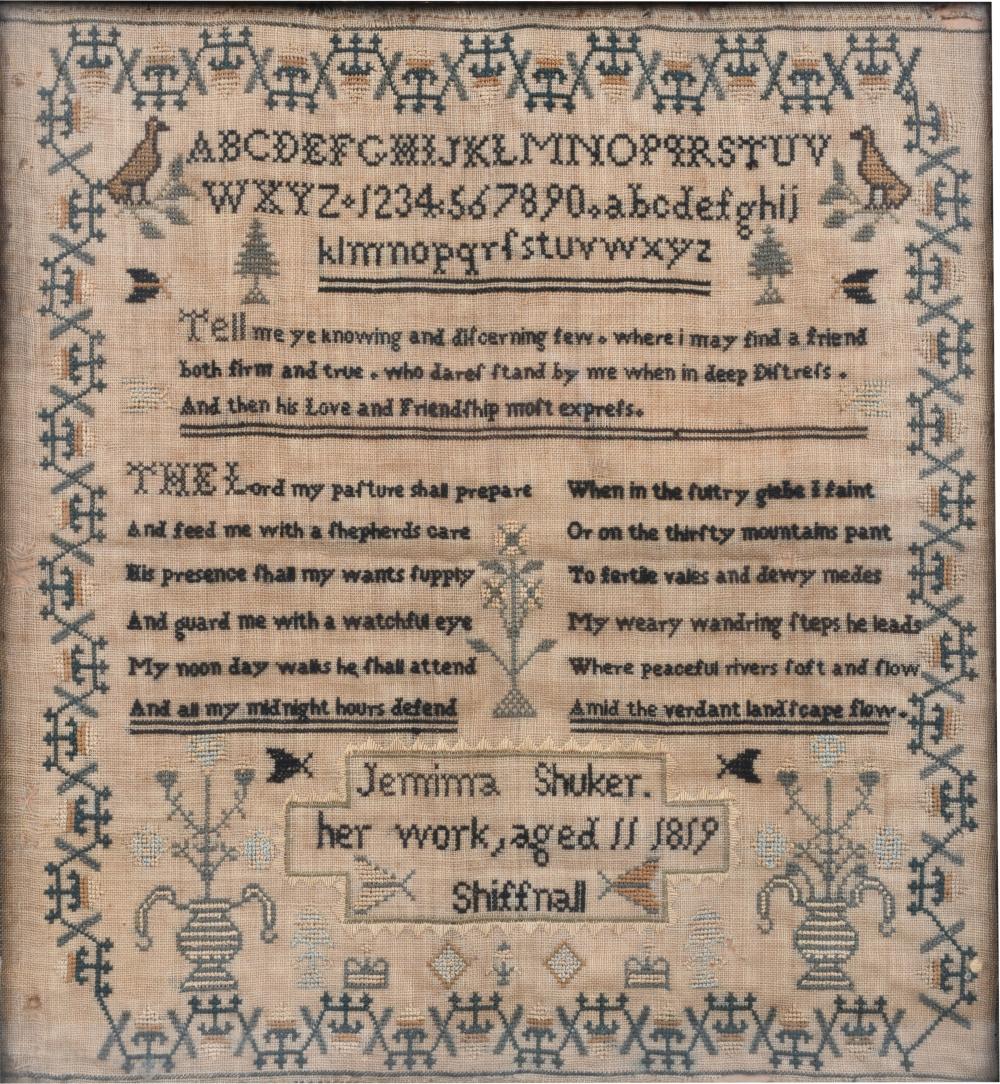 ABCDEFGHIJKLMNOPQRSTUV
WXYZ*1234:567890.abcdefghij
klmnopqrſstuvwxyz
Tell me ye knowing and diſcerning few. where i may find a friend
both firm and true. who dareſ ſtand by me when in deep Diſtreſs.
And then his Love and Friendſhip moſt expreſs.
THE Lord my paſture shall prepare
And feed me with a ſhepherds care
His presence ſhall my wants ſupply
And guard me with a watchful eye
My noon day walks he ſhall attend
And all my midnight hours defend
When in the ſultry glebe I faint
Or on the thirſty mountains pant
To fertile vales and dewy medes
My weary wandring ſteps he leads
Where peaceful rivers ſoft and flow
Amid the verdant landſcape flow.
Jemima Shuker.
her work, aged 11 1819
Shiffnall